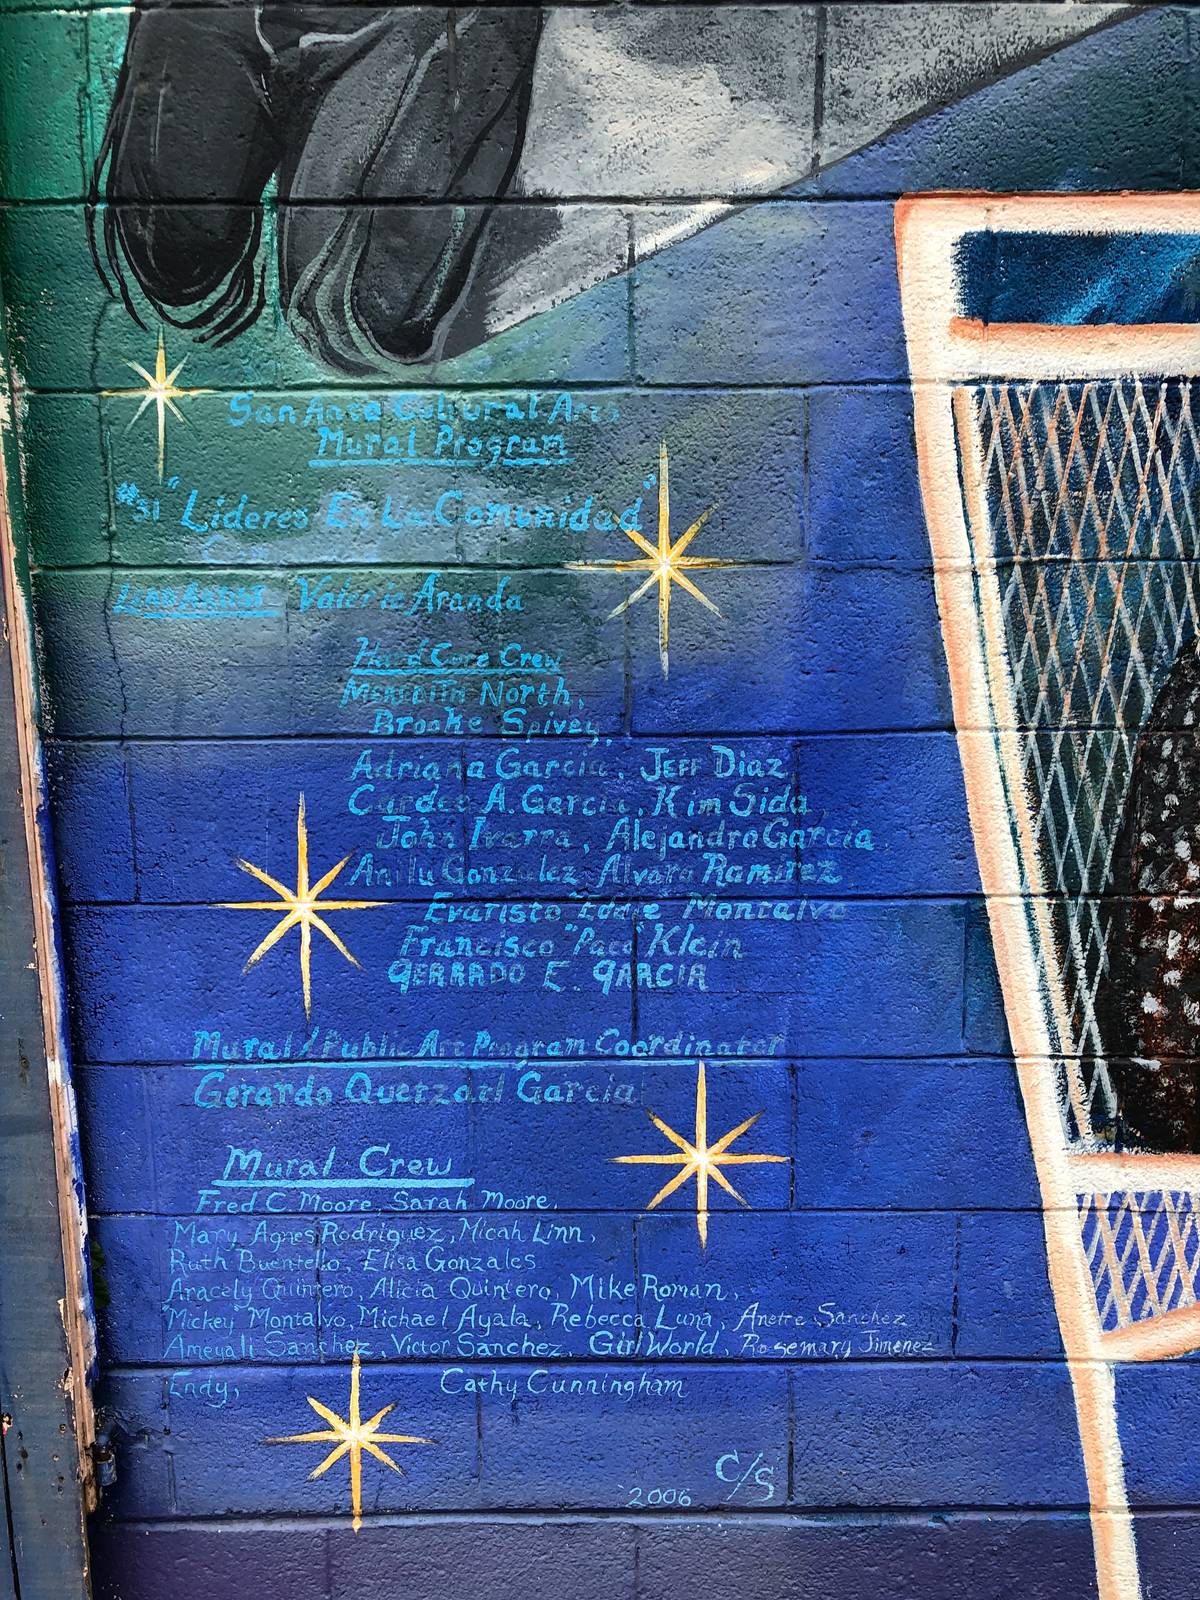 San Anto Cultural Arts
Mural Program
#31 "Lideres En La Comunidad"
LEAD ARTIST Valerie Aranda
Hard Core Crew
MEREDITH North,
Brooke Spivey,
Adriana Garcia, JEFF Diaz,
A. Garcia, Kim Sida,
John Ivarra, Alejandra Garcia,
Anilu Gonzalez, Alvaro Ramirez,
Evaristo "Eddie" Montalvo
Francisco "Paco" Klein
GERRADO E. GARCIA
Mural/Public Art Program Coordinator
Gerardo Quetzatl Garcia
Mural Crew
Fred C. Moore, Sarah Moore,
Mary Agnes Rodriguez, Micah Linn,
Ruth Buentello, Elisa Gonzales
Aracely Quintero, Alicia Quintero, Mike Roman,
"Mickey" Montalvo, Michael Ayala, Rebecca Luna, Anette Sanchez
Ameyali Sanchez, Victor Sanchez, Girl World, Rosemary Jimenez
Endy, Cathy Cunningham
'2006 C/S